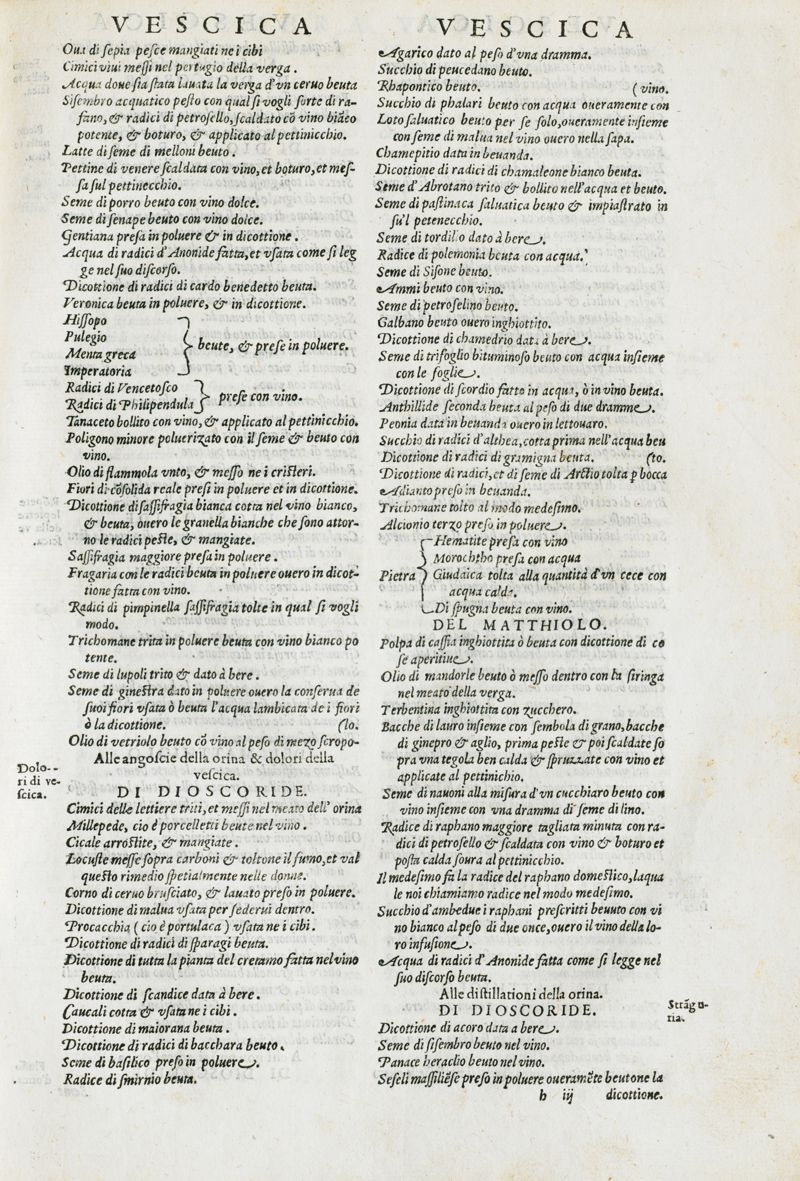 VESCICA
Oua di sepia pesce mangiati ne i cibi
Cimici viui messi nel pertugio della verga.
Acqua doue sia stata lauata la verga d'vn ceruo beuta
Sisembro acquatico pesto con qual si vogli sorte di ra-
fano, & radici di petrosello, scaldato cõ vino biãco
potente, & boturo, & applicato al pettinicchio.
Latte di seme di melloni beuto.
Pettine di venere scaldata con vino, et boturo, et mes-
sa sul pettinecchio.
Seme di porro beuto con vino dolce.
Seme di senape beuto con vino dolce.
Gentiana presa in poluere & in dicottione.
Acqua di radici d'Anonide fatta, et vsata come si leg
ge nel suo discorso.
Dicottione di radici di cardo benedetto beuta.
Veronica beuta in poluere, & in dicottione.
Hissopo
Pulegio
Menta greca
Imperatoria
beute, & prese in poluere.
Radici di Vencetosco
Radici di Philipendula
prese con vino.
Tanaceto bollito con vino, & applicato al pettinicchio.
Poligono minore poluerizato con il seme & beuto con
vino.
Olio di flammola vnto, & messo ne i cristeri.
Fiori di cõsolida reale presi in poluere et in dicottione.
Dicottione di sassifragia bianca cotta nel vino bianco,
& beuta, ouero le granella bianche che sono attor-
no le radici peste, & mangiate.
Sassifragia maggiore presa in poluere.
Fragaria con le radici beuta in poluere ouero in dicot-
tione fatta con vino.
Radici di pimpinella sassifragia tolte in qual si vogli
modo.
Trichomane trita in poluere beuta con vino bianco po
tente.
Seme di lupoli trito & dato à bere.
Seme di ginestra dato in poluere ouero la conserua de
suoi fiori vsata ò beuta l'acqua lambicata de i fiori
ò la dicottione. (lo.
Olio di vetriolo beuto cõ vino al peso di mezo scropo-
Alle angoscie della orina & dolori della
vescica.
Dolo-
ri di ve-
scica.
DI DIOSCORIDE.
Cimici delle lettiere triti, et messi nel meato dell' orina
Millepede, cio è porcelletti beute nel vino.
Cicale arrostite, & mangiate.
Locuste messe sopra carboni & toltone il fumo, et val
questo rimedio spetialmente nelle donne.
Corno di ceruo brusciato, & lauato preso in poluere.
Dicottione di malua vsata per sederui dentro.
Procacchia (cio è portulaca) vsata ne i cibi.
Dicottione di radici di sparagi beuta.
Dicottione di tutta la pianta del cretamo fatta nel vino
beuta.
Dicottione di scandice data à bere.
Caucali cotta & vsata ne i cibi.
Dicottione di maiorana beuta.
Dicottione di radici di bacchara beuto.
Seme di basilico preso in poluere.
Radice di smirnio beuta.
VESCICA
Agarico dato al peso d'vna dramma.
Succhio di peucedano beuto.
Rhapontico beuto. (vino.
Succhio di phalari beuto con acqua oueramente con
Loto saluatico beuto per se solo, oueramente insieme
con seme di malua nel vino ouero nella sapa.
Chamepitio data in beuanda.
Dicottione di radici di chamaleone bianco beuta.
Seme d'Abrotano trito & bollito nell'acqua et beuto.
Seme di pastinaca saluatica beuto & impiastrato in
su'l petenecchio.
Seme di tordilo dato à bere.
Radice di polemonia beuta con acqua.
Seme di Sisone beuto.
Ammi beuto con vino.
Seme di petroselino beuto.
Galbano beuto ouero inghiottito.
Dicottione di chamedrio data à bere.
Seme di trifoglio bituminoso beuto con acqua insieme
con le foglie.
Dicottione di scordio fatto in acqua, ò in vino beuta.
Anthillide seconda beuta al peso di due dramme.
Peonia data in beuanda ouero in lettouaro.
Succhio di radici d'althea, cotta prima nell'acqua beu
Dicottione di radici di gramigna beuta. (to.
Dicottione di radici, et di seme di Arctio tolta p bocca
Adianto preso in beuanda.
Trichomane tolto al modo medesimo.
Alcionio terzo preso in poluere.
Pietra
Hematite presa con vino
Morochtho presa con acqua
Giudaica tolta alla quantità d'vn cece con
acqua calda.
Di spugna beuta con vino.
DEL MATTHIOLO.
Polpa di cassia inghiottita ò beuta con dicottione di co
se aperitiue.
Olio di mandorle beuto ò messo dentro con la siringa
nel meato della verga.
Terbentina inghiottita con zucchero.
Bacche di lauro insieme con sembola di grano, bacche
di ginepro & aglio, prima peste & poi scaldate so
pra vna tegola ben calda & spruzzate con vino et
applicate al pettinichio.
Seme di nauoni alla misura d'vn cucchiaro beuto con
vino insieme con vna dramma di seme di lino.
Radice di raphano maggiore tagliata minuta con ra-
dici di petrosello & scaldata con vino & boturo et
posta calda soura al pettinicchio.
Il medesimo fa la radice del raphano domestico, laqua
le noi chiamiamo radice nel modo medesimo.
Succhio d'ambedue i raphani prescritti beuuto con vi
no bianco al peso di due once, ouero il vino della lo-
ro infusione.
Acqua di radici d'Anonide fatta come si legge nel
suo discorso beuta.
Alle distillationi della orina.
Strãgu-
ria.
DI DIOSCORIDE.
Dicottione di acoro data a bere.
Seme di sisembro beuto nel vino.
Panace heraclio beuto nel vino.
Seseli massiliẽse preso in poluere oueramẽte beutone la
b iij dicottione.